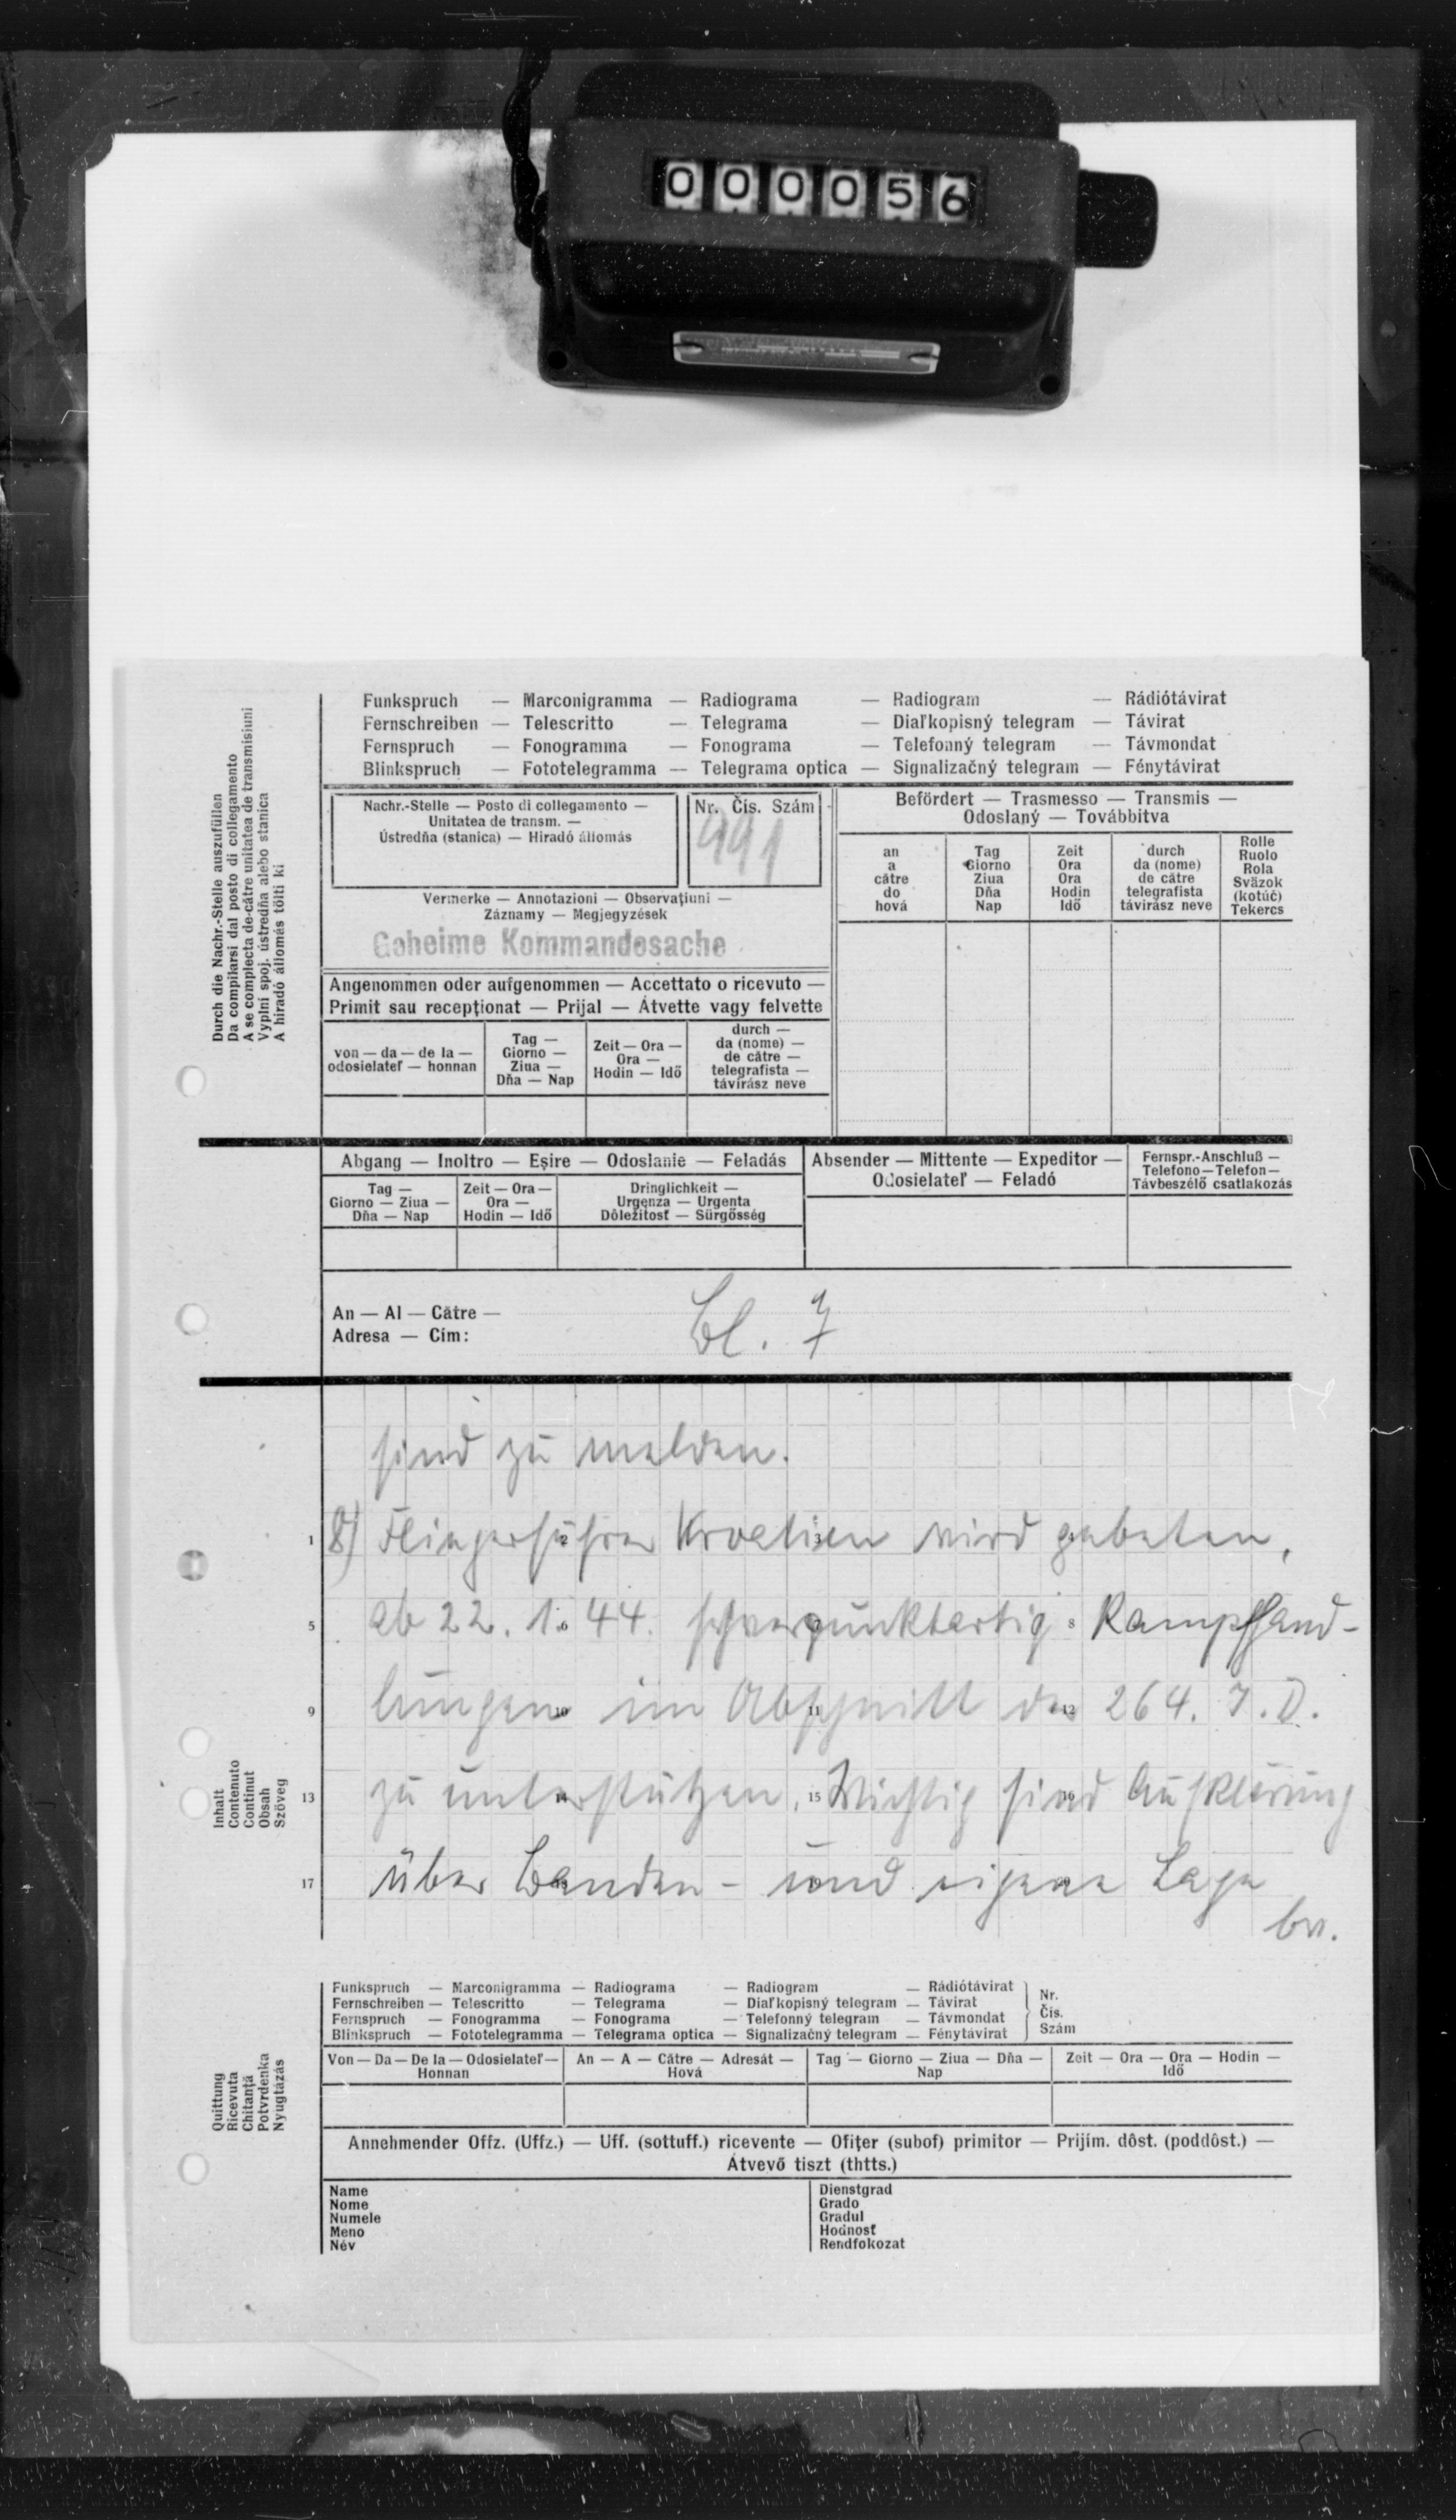 000056
Funkspruch — Marconigramma — Radiograma — Radiogram — Rádiótávirat
Fernschreiben — Telescritto — Telegrama — Diaľkopisný telegram — Távirat
Fernspruch — Fonogramma — Fonograma — Telefonný telegram — Távmondat
Blinkspruch — Fototelegramma — Telegrama optica — Signalizačný telegram — Fénytávirat
Durch die Nachr.-Stelle auszufüllen
Da compilarsi dal posto di collegamento
A se complecta de-către unitatea de transmisiuni
Vyplní spoj. ústredňa alebo stanica
A hiradó állomás tölti ki
Nachr.-Stelle — Posto di collegamento —
Unitatea de transm. —
Ústredňa (stanica) — Hiradó állomás
Nr. Čís. Szám
991
Vermerke — Annotazioni — Observațiuni —
Záznamy — Megjegyzések
Geheime Kommandosache
Angenommen oder aufgenommen — Accettato o ricevuto —
Primit sau recepționat — Prijal — Átvette vagy felvette
von — da — de la —
odosielateľ — honnan
Tag —
Giorno —
Ziua —
Dňa — Nap
Zeit — Ora —
Ora —
Hodin — Idő
durch —
da (nome) —
de către —
telegrafista —
távirász neve
Befördert — Trasmesso — Transmis —
Odoslaný — Továbbitva
an
a
către
do
hová
Tag
Giorno
Ziua
Dňa
Nap
Zeit
Ora
Ora
Hodin
Idő
durch
da (nome)
de către
telegrafista
távirász neve
Rolle
Ruolo
Rola
Sväzok
(kotúč)
Tekercs
Abgang — Inoltro — Eșire — Odoslanie — Feladás
Tag —
Giorno — Ziua —
Dňa — Nap
Zeit — Ora —
Ora —
Hodin — Idő
Dringlichkeit —
Urgenza — Urgenta
Dôležitosť — Sürgősség
Absender — Mittente — Expeditor —
Odosielateľ — Feladó
Fernspr.-Anschluß —
Telefono — Telefon —
Távbeszélő csatlakozás
An — Al — Către —
Adresa — Cím:
Bl. 7
sind zu melden.
1 8) Fliegerführer Kroatien wird gebeten,
5 ab 22. 1. 44. schwerpunktartig Kampfhand-
9 lungen im Abschnitt der 264. I.D.
13 zu unterstützen. Wichtig sind Aufklärung
17 über Banden- und eigene Lage
bw.
Inhalt
Contenuto
Continut
Obsah
Szöveg
Funkspruch — Marconigramma — Radiograma — Radiogram — Rádiótávirat
Fernschreiben — Telescritto — Telegrama — Diaľkopisný telegram — Távirat
Fernspruch — Fonogramma — Fonograma — Telefonný telegram — Távmondat
Blinkspruch — Fototelegramma — Telegrama optica — Signalizačný telegram — Fénytávirat
Nr.
Čís.
Szám
Quittung
Ricevuta
Chitanță
Potvrdenka
Nyugtázás
Von — Da — De la — Odosielateľ —
Honnan
An — A — Către — Adresát —
Hová
Tag — Giorno — Ziua — Dňa —
Nap
Zeit — Ora — Ora — Hodin —
Idő
Annehmender Offz. (Uffz.) — Uff. (sottuff.) ricevente — Ofițer (subof) primitor — Prijím. dôst. (poddôst.) —
Átvevő tiszt (thtts.)
Name
Nome
Numele
Meno
Név
Dienstgrad
Grado
Gradul
Hodnosť
Rendfokozat